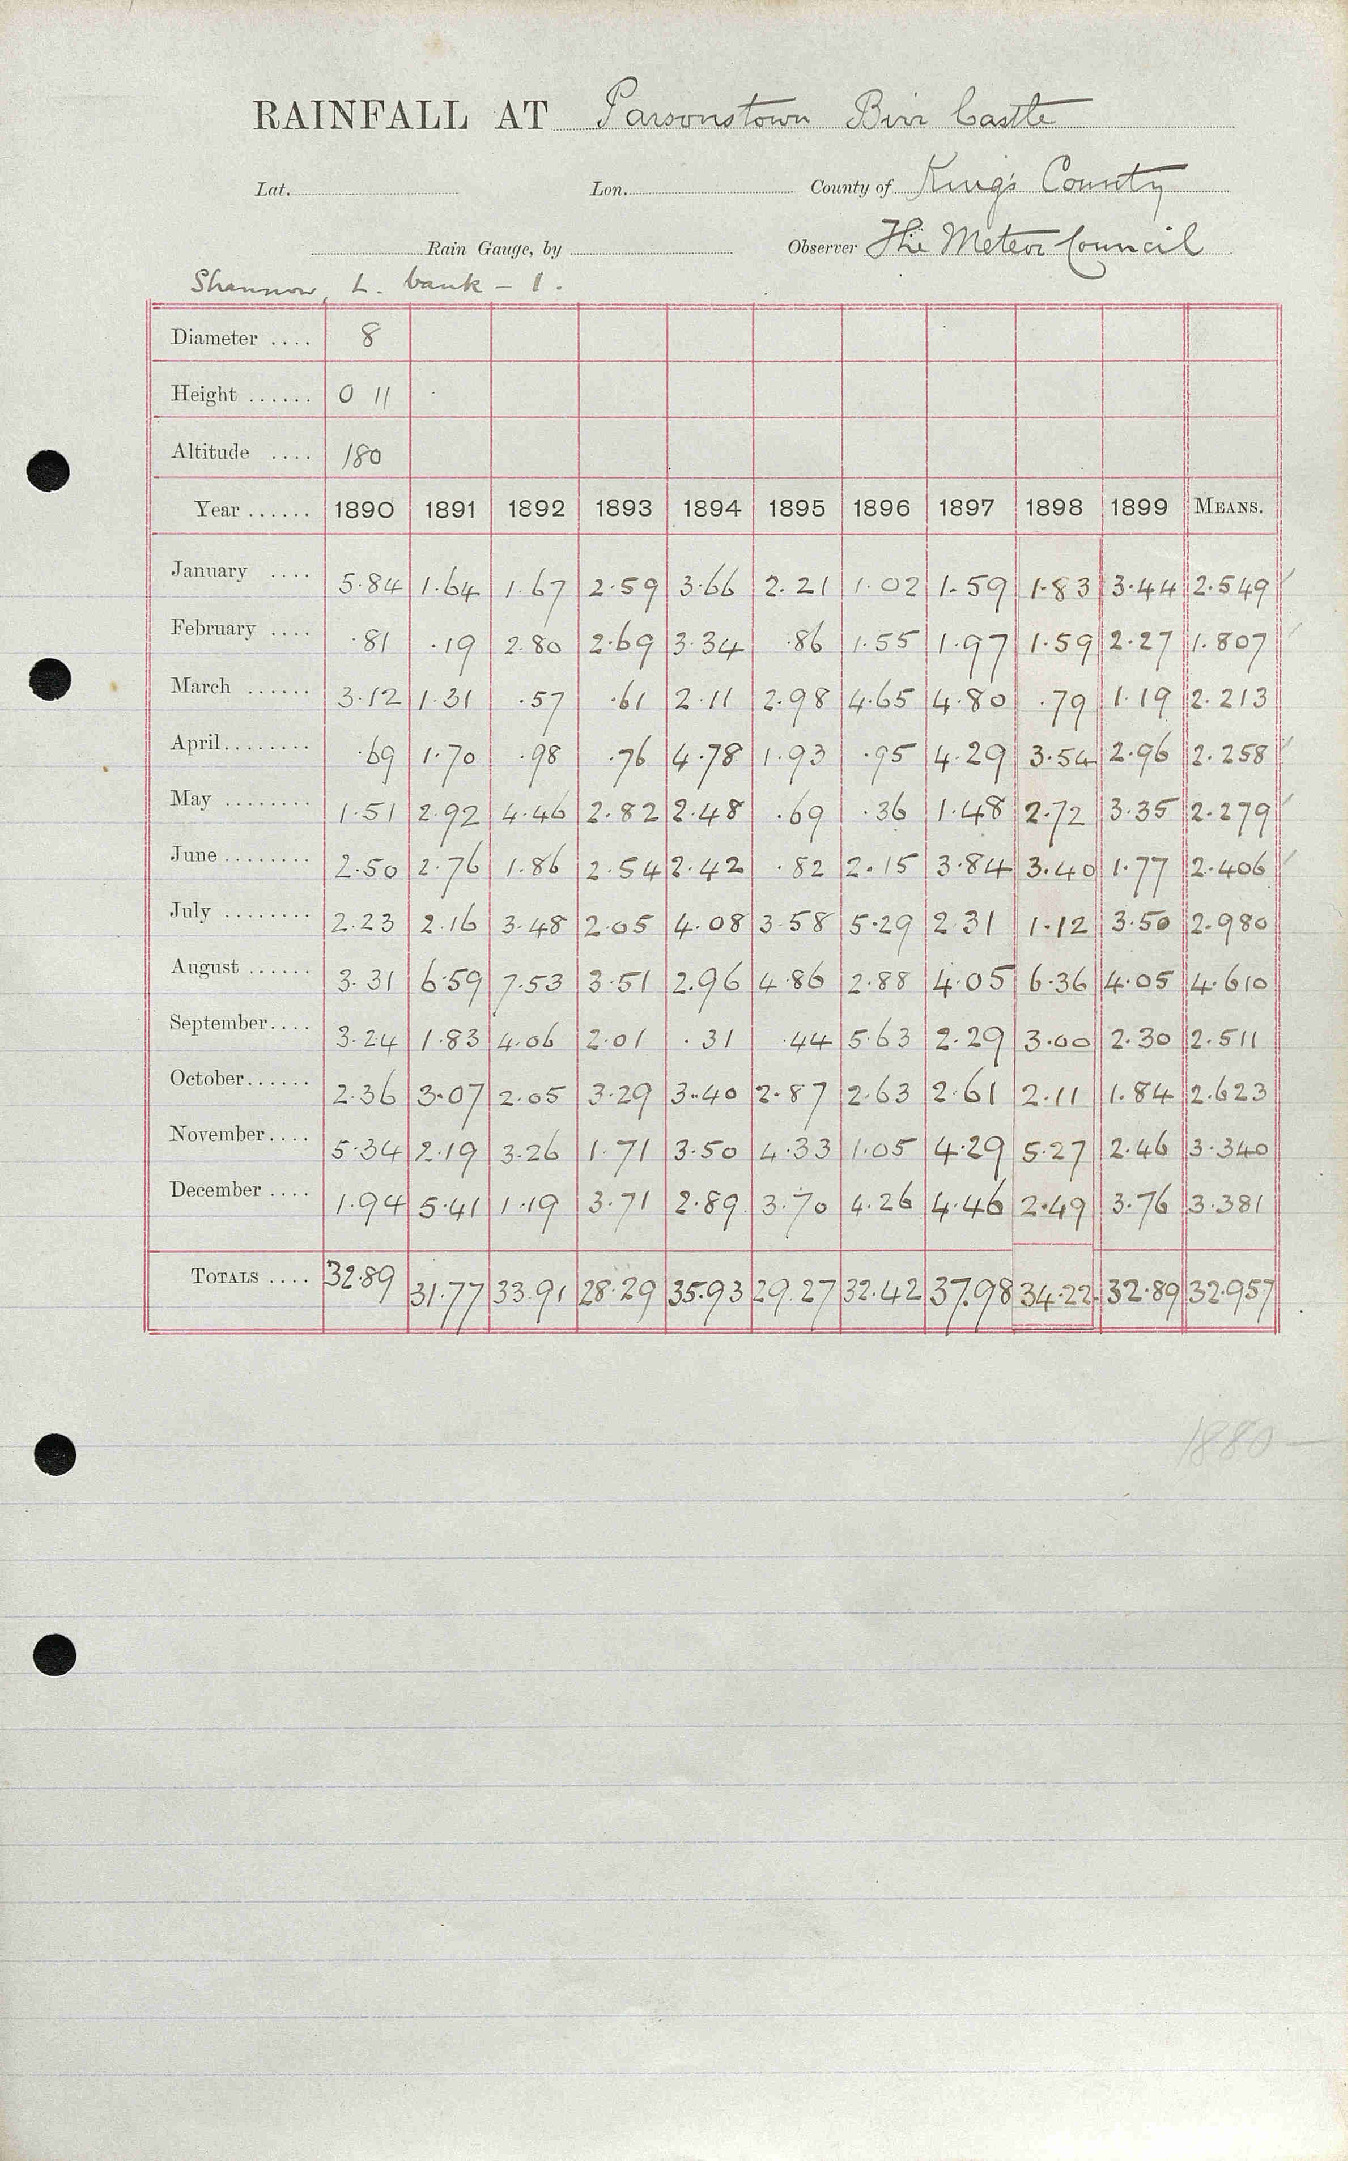 RAINFALL AT Parsonstown Birr Castle
Lat. Lon. County of King's County
Rain Gauge, by Observer The Meteor Council
Shannon, L. bank - 1.
Diameter .... 8
Height ...... 0 11
Altitude .... 180
Year ...... 1890 1891 1892 1893 1894 1895 1896 1897 1898 1899 MEANS.
January .... 5.84 1.64 1.67 2.59 3.66 2.21 1.02 1.59 1.83 3.44 2.549
February .... .81 .19 2.80 2.69 3.34 .86 1.55 1.97 1.59 2.27 1.807
March ...... 3.12 1.31 .57 .61 2.11 2.98 4.65 4.80 .79 1.19 2.213
April........ .69 1.70 .98 .76 4.78 1.93 .95 4.29 3.54 2.96 2.258
May ........ 1.51 2.92 4.46 2.82 2.48 .69 .36 1.48 2.72 3.35 2.279
June ........ 2.50 2.76 1.86 2.54 2.42 .82 2.15 3.84 3.40 1.77 2.406
July ........ 2.23 2.16 3.48 2.05 4.08 3.58 5.29 2.31 1.12 3.50 2.980
August ...... 3.31 6.59 7.53 3.51 2.96 4.86 2.88 4.05 6.36 4.05 4.610
September.... 3.24 1.83 4.06 2.01 .31 .44 5.63 2.29 3.00 2.30 2.511
October...... 2.36 3.07 2.05 3.29 3.40 2.87 2.63 2.61 2.11 1.84 2.623
November.... 5.34 2.19 3.26 1.71 3.50 4.33 1.05 4.29 5.27 2.46 3.340
December .... 1.94 5.41 1.19 3.71 2.89 3.70 4.26 4.46 2.49 3.76 3.381
TOTALS .... 32.89 31.77 33.91 28.29 35.93 29.27 32.42 37.98 34.22 32.89 32.957
1880 —